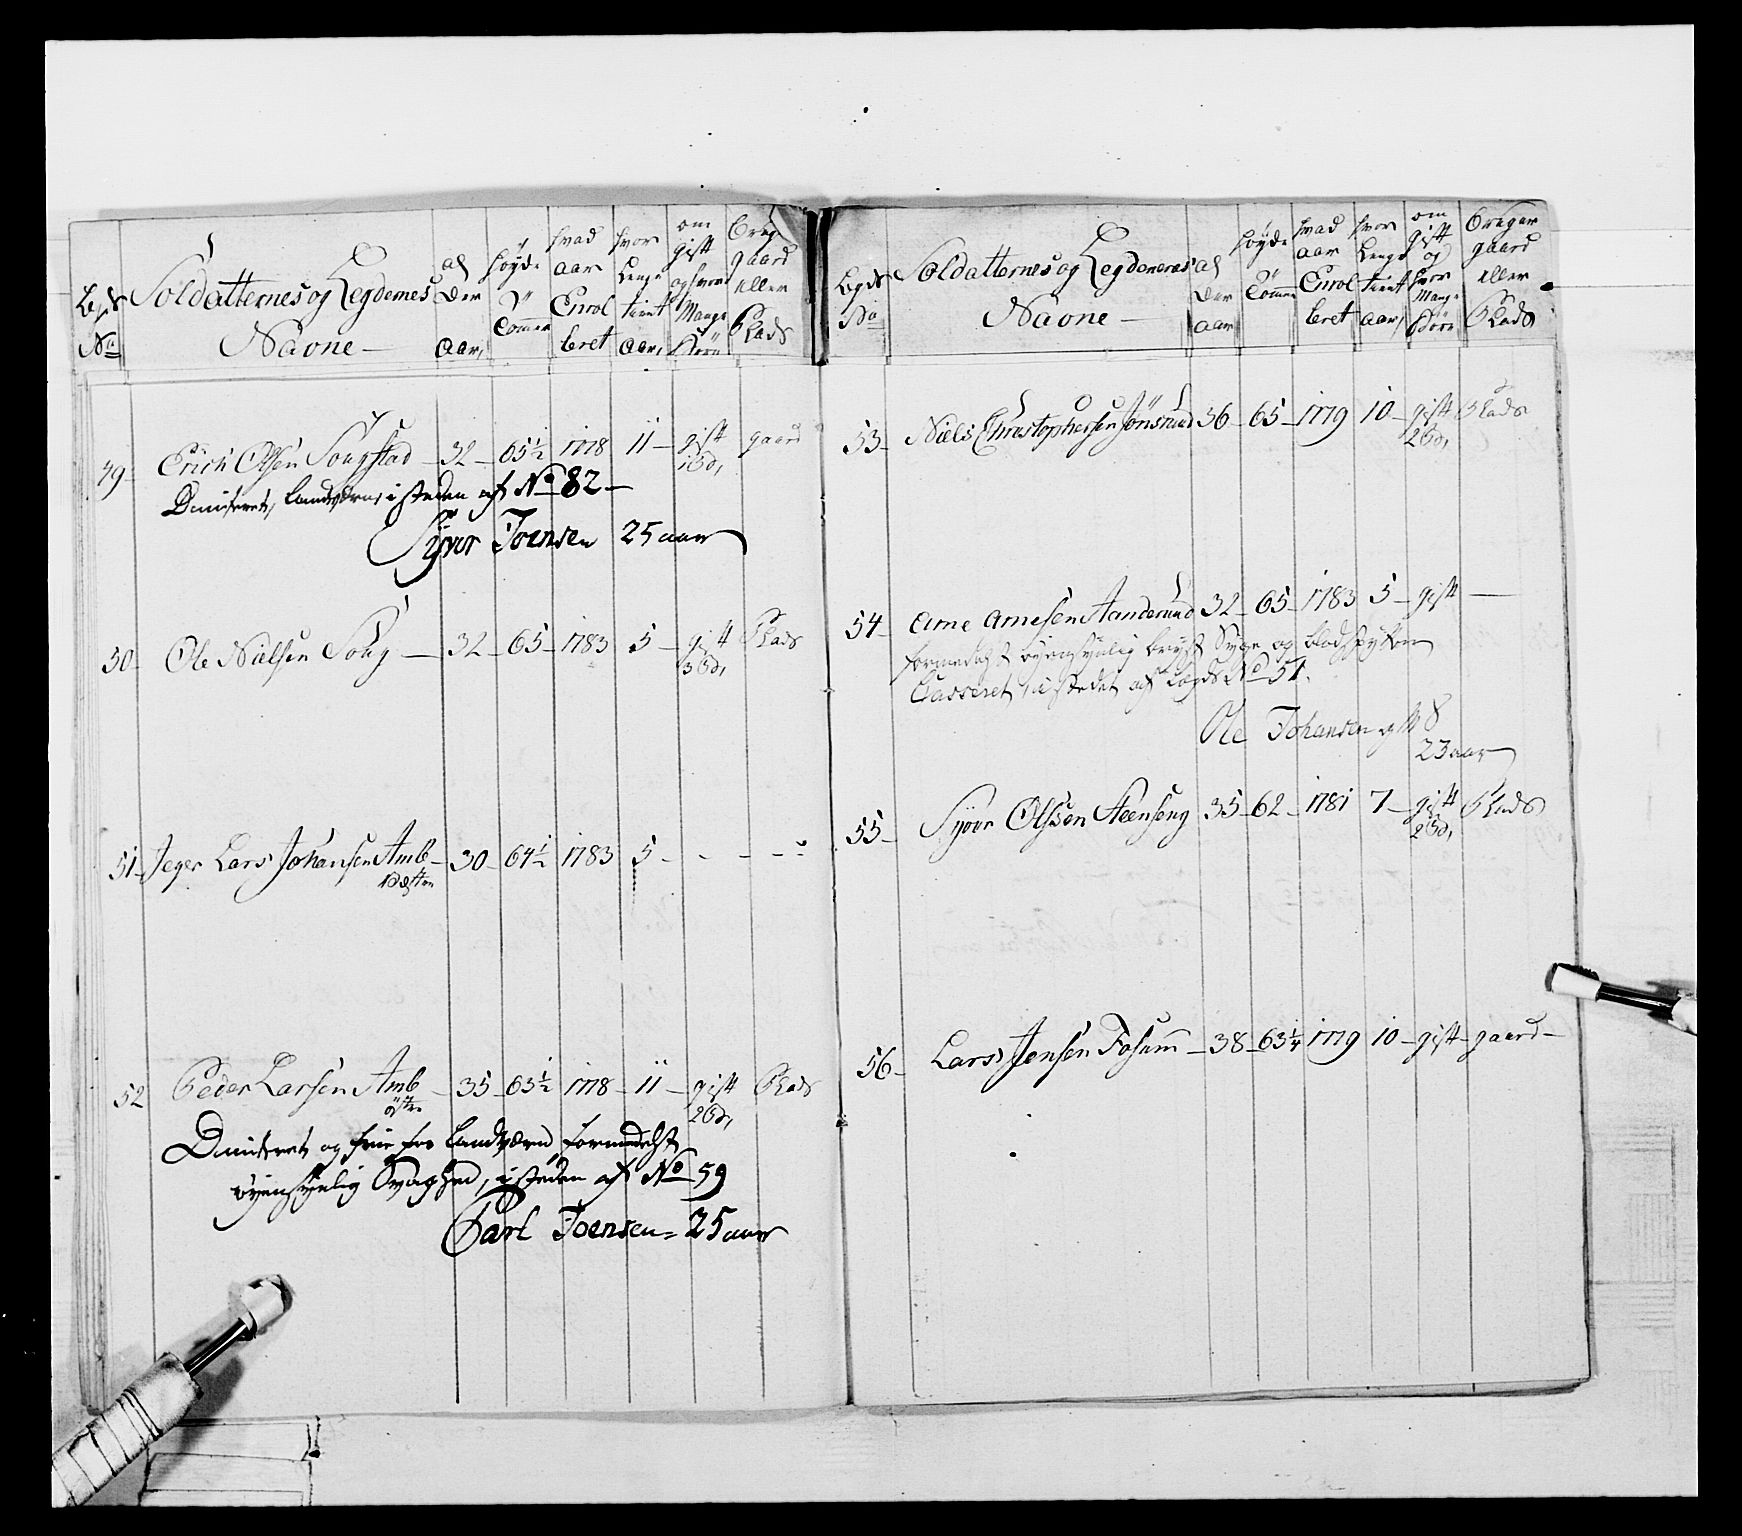 Lgds No
Soldatternes og Legdernes Navne
al der aar,
høyde Tommer
hvad aar Enrol leret
hvor Lenge tient aar,
om gift og hvor Mange Børn
Brug gaard eller Plads
49 Erich Olsen Sougstad 32 65½ 1778 11 gift 1 Bd, gaard
Dimiteret, Landværn, i steden af No 82
Syver Joensen 25 aar
50 Ole Nielsen Soug 32 65 1783 5 gift 3 Bd, Plads
51 Jeger Lars Johansen Amb 30 64½ 1783 5 - - - -
Vestre
52 Peder Larsen Amb 35 63½ 1778 11 gift 2 Bd, Plads
østre
Dimiteret og frie for Landværn, formedelst
øyensynlig Svaghed, i steden af No 59
Carl Joensen = 25 aar
Lgds No
Soldatternes og Legdernes Navne
al der aar
høyde Tomme
hvad aar Enrol leret
hvor Lenge tient aar,
om gift og hvor Mange Børn
Bruger gaard eller Plads
53 Niels Christophersen Jonsrud 36 65 1779 10 gift 2 Bd, Plads
54 Arne Arnesen Aanderud 32 65 1783 5 gift —
formedelst øyensynlig bryst Syge og blodspytten
Casseret, i stedet af Lægds No 51.
Ole Johansen gift
23 aar
55 Syver Olssen Steenseng 35 62 1781 7 gift 2 Bd, Plads
56 Lars Jensen Fosum 38 63¼ 1779 10 gift gaard